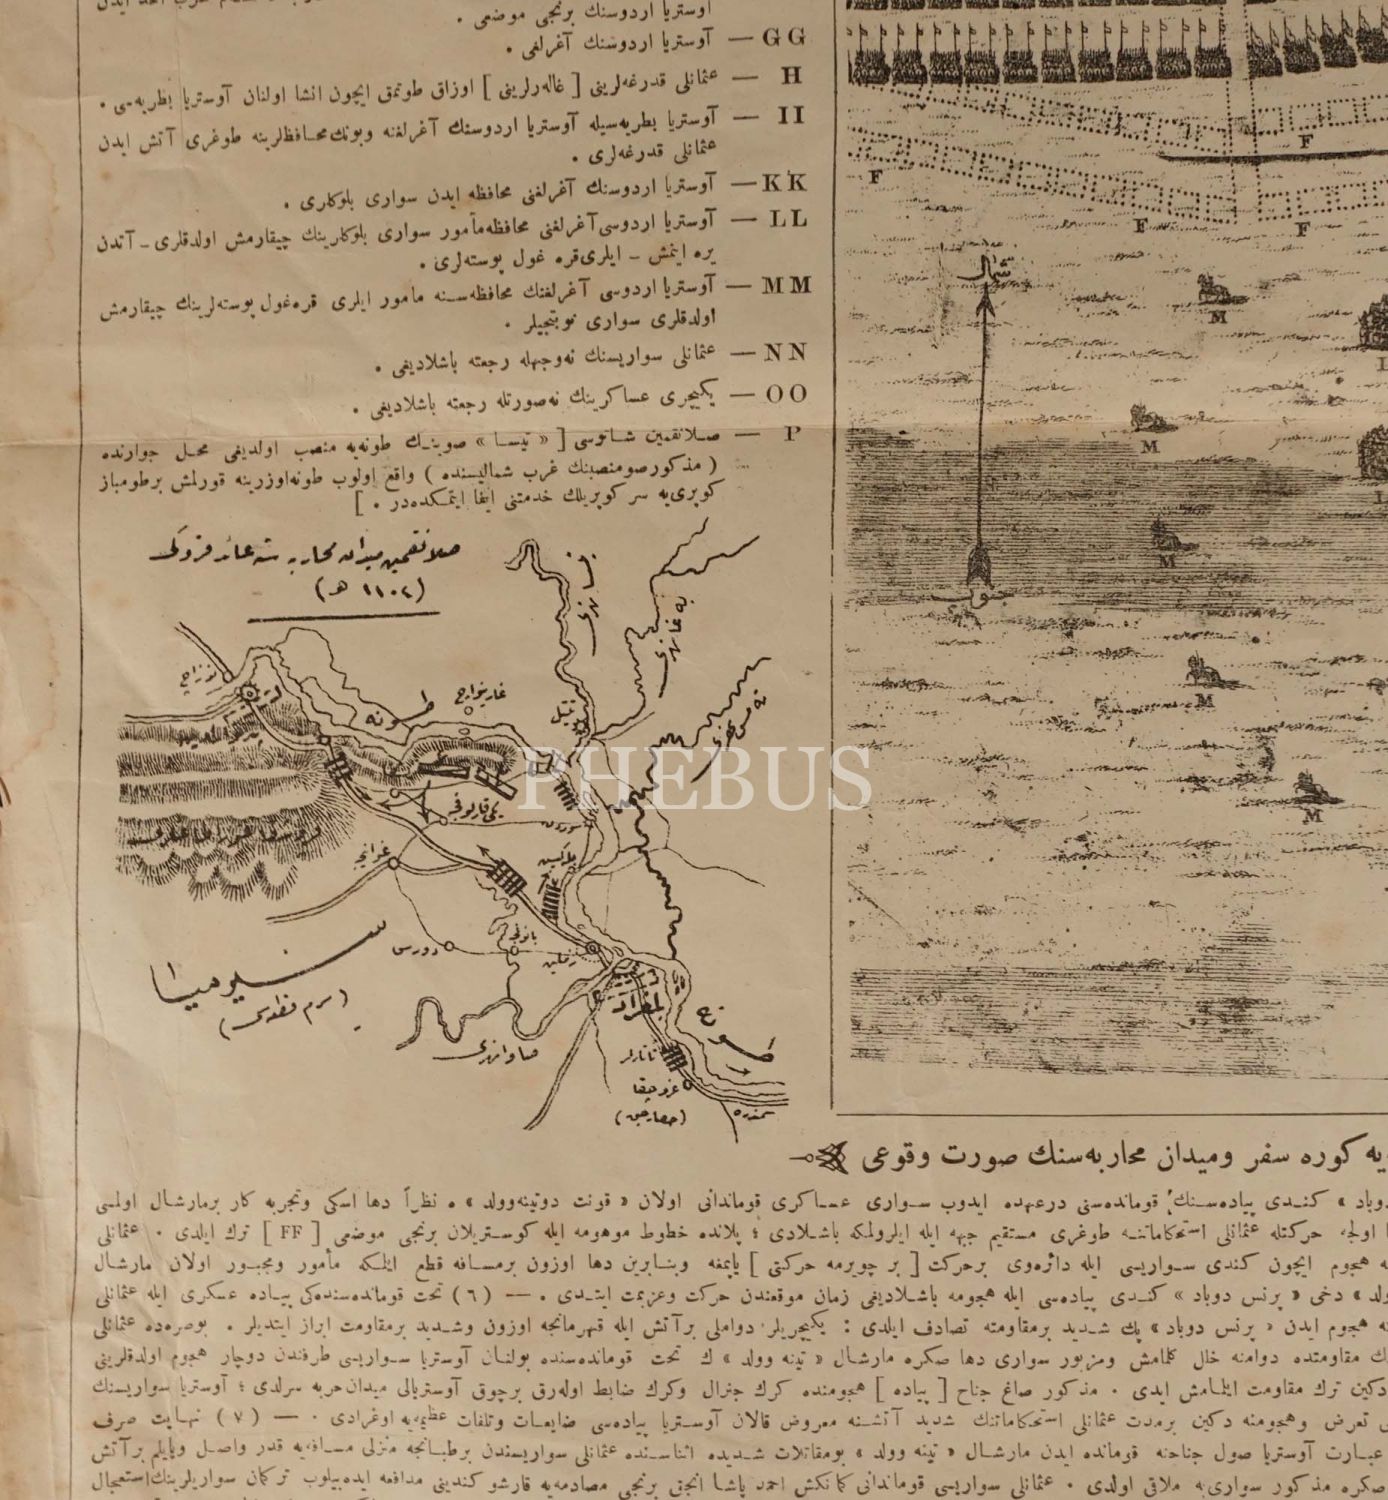 آوستریا اردوسنك برنجی موضعی .
GG — آوستریا اردوسنك آغرلغی .
H — عثمانلی قدرغه‌لرینی [ غاله‌رلرینی ] اوزاق طوتمق ایچون انشا اولنان آوستریا بطریه‌سی .
II — آوستریا بطریه‌سیله آوستریا اردوسنك آغرلغنه وبونك محافظلرینه طوغری آتش ایدن
عثمانلی قدرغه‌لری .
KK — آوستریا اردوسنك آغرلغنی محافظه ایدن سواری بلوكلری .
LL — آوستریا اردوسی آغرلغنی محافظه‌مأمور سواری بلوكلرینك چیقارمش اولدقلری ـ آتدن
یره اینمش ـ ایلری قره غول پوسته‌لری .
MM — آوستریا اردوسی آغرلغنك محافظه‌سنه مأمور ایلری قره‌غول پوسته‌لرینك چیقارمش
اولدقلری سواری نوبتجیلر .
NN — عثمانلی سواریسنك نه‌وجهله رجعته باشلادیغی .
OO — یكیچری عساكرینك نه‌صورتله رجعته باشلادیغی .
P — صلانقمین شاتوسی [ « تیسا » صوینك طونه‌یه منصب اولدیغی محل جوارنده
( مذكور صو منصبنك غرب شمالیسنده ) واقع اولوب طونه اوزرینه قورلمش برطومباز
كوپری‌یه سر كوپریلك خدمتنی ایفا ایتمكده‌در . ]
صلانقمین میدان محاربه‌سنه عائد قروكی
(١١٠٢ هـ)
طونه
تیتل
بلغراد
طونه
(حصارجق)
سمندره
شمال
جنوب
F
F
F
F
M
M
M
M
M
L
L
PHEBUS
كوره سفر ومیدان محاربه‌سنك صورت وقوعی
دوباد » كندی پیاده‌سنك قومانده‌سنی درعهده ایدوب سواری عساكری قوماندانی اولان « قونت دوتینه‌وولد » ه نظراً دها اسكی وتجربه كار برمارشال اولمسی
حركتله عثمانلی استحكاماتنه طوغری مستقیم جبهه ایله ایلرولمكه باشلادی ؛ پلانده خطوط موهومه ایله كوستریلان برنجی موضعی [ FF ] ترك ایلدی . عثمانلی
هجوم ایچون كندی سواریسی ایله دائره‌وی برحركت [ بر چویرمه حركتی ] یاپمغه وبنابرین دها اوزون برمسافه قطع ایلمكه مأمور ومجبور اولان مارشال
دخی « پرنس دوباد » كندی پیاده‌سی ایله هجومه باشلادیغی زمان موقعندن حركت وعزیمت ایتدی . — (٦) تحت قومانده‌سنده‌كی پیاده عسكری ایله عثمانلی
هجوم ایدن « پرنس دوباد » پك شدید برمقاومته تصادف ایلدی : یكیچریلر دواملی برآتش ایله قهرمانجه اوزون وشدید برمقاومت ابراز ایتدیلر . بوصره‌ده عثمانلی
مقاومتده دوامنه خلل كلمامش ومزبور سواری دها صكره مارشال « تینه وولد » ك تحت قومانده‌سنده بولنان آوستریا سواریسی طرفندن دوچار هجوم اولدقلرینی
دكین ترك مقاومت ایلمامش ایدی . مذكور صاغ جناح [ پیاده ] هجومنده كرك جنرال وكرك ضابط اوله‌رق برچوق آوستریالی میدان حربه سرلدی ؛ آوستریا سواریسنك
تعرض وهجومنه دكین برمدت عثمانلی استحكاماتنك شدید آتشنه معروض قالان آوستریا پیاده‌سی ضایعات وتلفات عظیمه‌یه اوغرادی . — (٧) نهایت صرف
عبارت آوستریا صول جناحنه قومانده ایدن مارشال « تینه وولد » بومقاتلات شدیده اثناسنده عثمانلی سواریسندن برطبانجه منزلی مسافه‌یه قدر واصل وپایلم برآتش
صكره مذكور سواری‌یه ملاقی اولدی . عثمانلی سواریسی قوماندانی كمانكش احمد پاشا انجق برنجی مصادمه‌یه قارشو كندینی مدافعه ایده‌بیلوب تركمان سواریلرینك استعجال